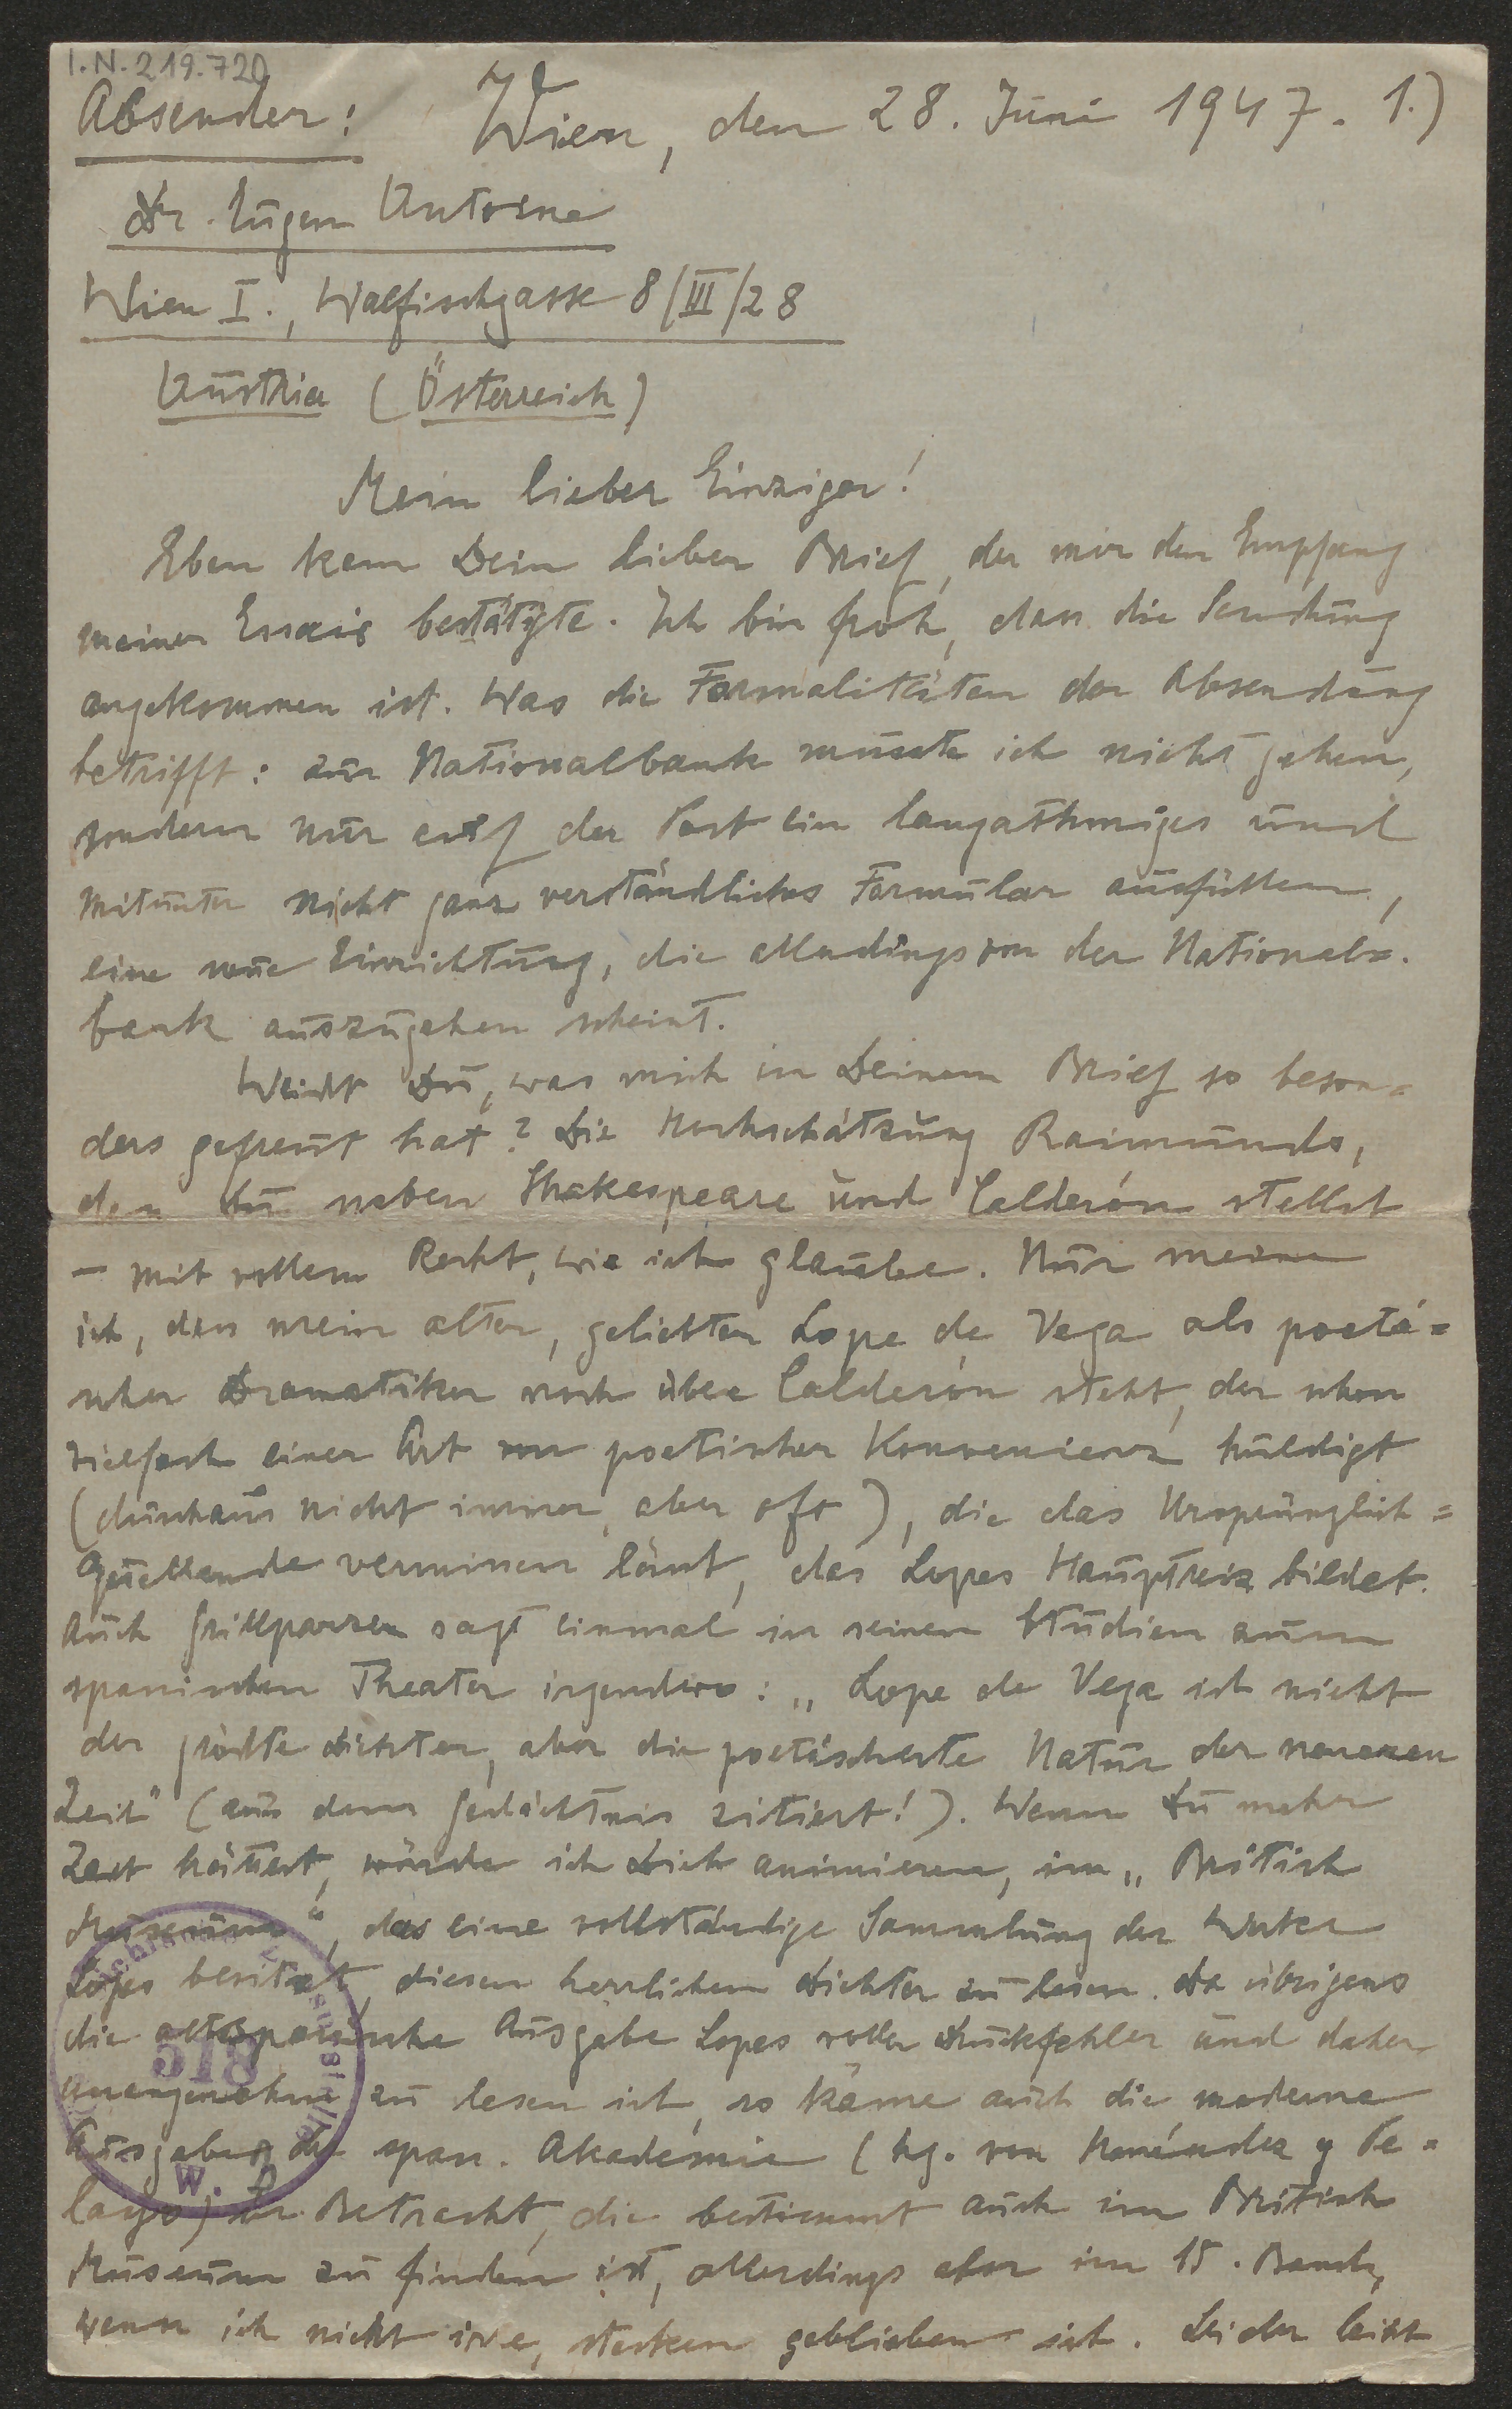 I.N. 219.720
Absender: Wien, den 28. Juni 1947. 1.)
Dr. Eugen Antoine
Wien I., Walfischgasse 8/III/28
Austria (Österreich)
Mein lieber Einziger!
Eben kam Dein lieber Brief, der mir den Empfang
meiner Essais bestätigte. Ich bin froh, dass die Sendung
angekommen ist. Was die Formalitäten der Absendung
betrifft: zur Nationalbank musste ich nicht gehen,
sondern nur auf der Post ein langathmiges und
mitunter nicht ganz verständliches Formular ausfüllen,
eine neue Einrichtung, die allerdings von der National=
bank auszugehen scheint.
Weisst Du, was mich in Deinem Brief so beson=
ders gefreut hat? Die Hochschätzung Raimunds,
den Du neben Shakespeare und Calderón stellst
– mit vollem Recht, wie ich glaube. Nur meine
ich, dass mein alter, geliebter Lope de Vega als poeti=
scher Dramatiker noch über Calderón steht, der schon
vielfach einer Art von poetischer Konvenienz huldigt
(durchaus nicht immer, aber oft), die das Ursprünglich=
Quellende vermissen lässt, das Lopes Hauptreiz bildet.
Auch Grillparzer sagt einmal in seinen Studien zum
spanischen Theater irgendwo: „Lope de Vega ist nicht
der grösste Dichter, aber die poetischeste Natur der neueren
Zeit" (aus dem Gedächtnis zitiert!). Wenn Du mehr
Zeit hättest, würde ich Dich animieren, im „British
Museum", das eine vollständige Sammlung der Werke
Lopes besitzt, diesen herrlichen Dichter zu lesen. Da übrigens
die altspanische Ausgabe Lopes voller Druckfehler und daher
unangenehm zu lesen ist, so käme auch die moderne
Ausgabe der span. Akademie (hg. von Menéndez y Pe=
layo) in Betracht, die bestimmt auch im British
Museum zu finden ist, allerdings aber im 15. Bande,
wenn ich nicht irre, stecken geblieben ist. Leider leiht
518
W.